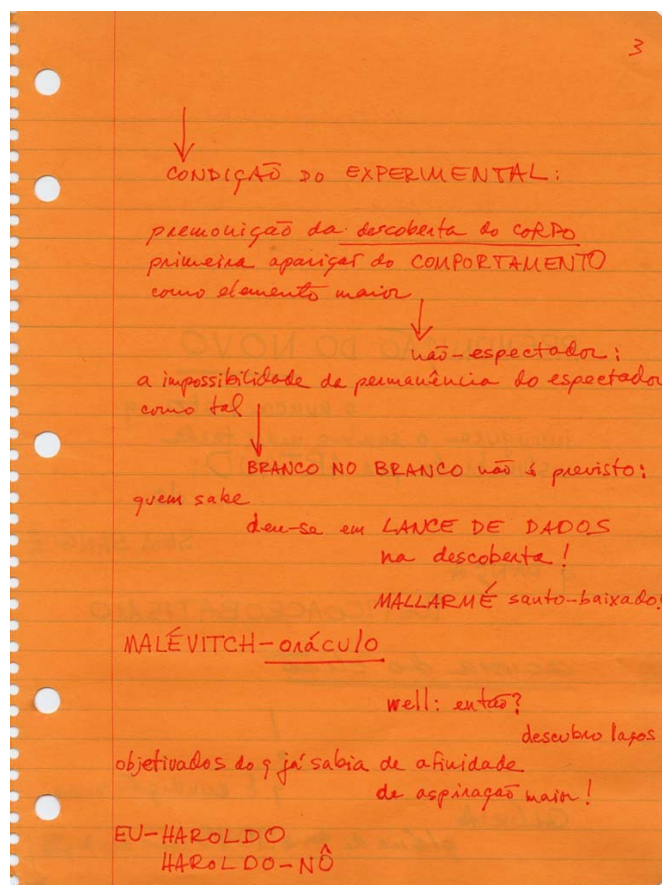 3
CONDIÇÃO DO EXPERIMENTAL:
premonição da descoberta do CORPO
primeira aparição do COMPORTAMENTO
como elemento maior
não-espectador:
a impossibilidade de permanência do espectador
como tal
BRANCO NO BRANCO não é previsto:
quem sabe
deu-se em LANCE DE DADOS
na descoberta!
MALLARMÉ santo-baixado!
MALÉVITCH-oráculo
well: então?
descubro laços
objetivados do q já sabia de afinidade
de aspiração maior!
EU-HAROLDO
HAROLDO-NÔ